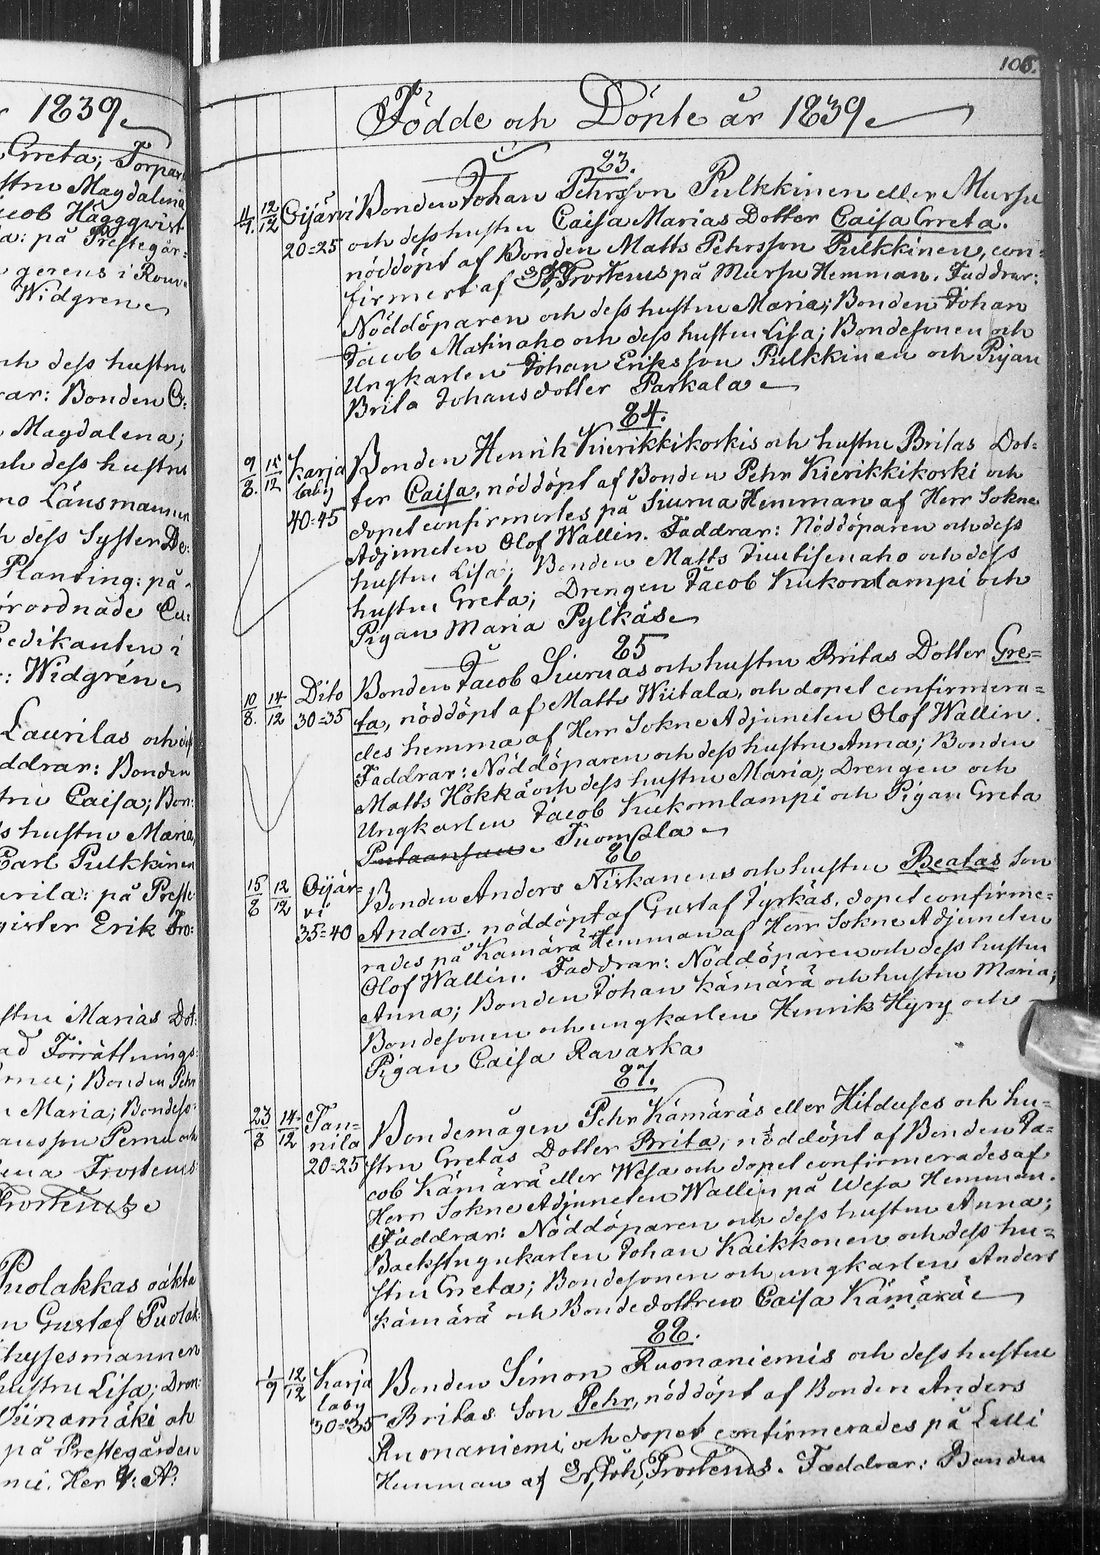 1839
Greta; Torpar
stru Magdalena
cob Häggqvist
a: på Prestegår-
gerens i Rouv
Widgren
ch dess hustru
rar: Bonden
Magdalena;
ch dess hustru
no Länsmannen
h dess Syster
Planting: på
rordnade
redikanten i
: Widgrén
Laurilas och
ddrar: Bonden
tru Caisa; Bon:
s hustru Maria,
Carl Pulkkinen
urila: på Preste
gister Erik Fro:
stru Marias Dot:
ad Förrättnings:
; Bonden Pehr
n Maria; Bondes:
ansson Pernu och
ena Frosterus
Frosterus
Puolakkas oäkta
n Gustaf Puolak:
hysesmannen
hustru Lisa; Dren:
Viinamäki och
på Prestegården
mi. Herr V: A:
106.
Födde och Döpte år 1839
23.
4/7. 12/12 Oijärvi Bonden Johan Pehrsson Pulkkinen eller Mursu
20=25 och dess hustru Caisa Marias Dotter Caisa Greta.
nöddöpt af Bonden Matts Pehrsson Pulkkinen, con-
firmert af Frosterus på Mursu Hemman. Faddrar:
Nöddöparen och dess hustru Maria; Bonden Johan
Jacob Matinaho och dess hustru Lisa; Bondesonen och
Ungkarlen Johan Eriksson Pulkkinen och Pigan
Brita Johansdotter Parkala
84.
9/8. 15/12 Karja Bonden Henrik Kierikkikoskis och hustru Britas Dot-
laby ter Caisa, nöddöpt af Bonden Pehr Kierikkikoski och
40=45 dopet confirmertes på Siurua Hemman af Herr Sokne
Adjuncten Olof Wallin. Faddrar: Nöddöparen och dess
hustru Lisa; Bonden Matts Juutisenaho och dess
hustru Greta; Drengen Jacob Kukonlampi och
Pigan Maria Pylkäs
85
10/8. 14/12 Dito Bonden Jacob Siuruas och hustru Britas Dotter Gre=
30=35 ta, nöddöpt af Matts Wiitala, och dopet confirmera=
des hemma af Herr Sokne Adjuncten Olof Wallin.
Faddrar: Nöddöparen och dess hustru Anna; Bonden
Matts Hökkä och dess hustru Maria; Drengen och
Ungkarlen Jacob Kukonlampi och Pigan Greta
Tuomela
86
15/8 12/12 Oijär- Bonden Anders Niskanens och hustru Beatas Son
vi Anders. nöddöpt af Gustaf Tyrkäs, dopet confirme=
35=40 rades på Kämärä Hemman af Herr Sokne Adjuncten
Olof Wallin. Faddrar: Nöddöparen och dess hustru
Anna; Bonden Johan Kämärä och hustru Maria;
Bondesonen och ungkarlen Henrik Hyry och
Pigan Caisa Ravaska
87.
23/8 14/12 Tan- Bondemågen Pehr Kämäräs eller Hilduses och hu-
nila stru Gretas Dotter Brita, nöddöpt af Bonden Ja-
20=25 cob Kämärä eller Wesa och dopet confirmerades af
Herr Sokne Adjuncten Wallin på Wesa Hemman.
Faddrar: Nöddöparen och dess hustru Anna;
Backstugukarlen Johan Kaikkonen och dess hu-
stru Greta; Bondesonen och ungkarlen Anders
Kämärä och Bondedottren Caisa Kämärä
88.
1/9 12/12 Karja Bonden Simon Ruonaniemis och dess hustru
laby Britas Son Pehr, nöddöpt af Bonden Anders
30=35 Ruonaniemi, och dopet confirmerades på Lalli
Hemman af Joh, Frosterus. Faddrar: Bonden